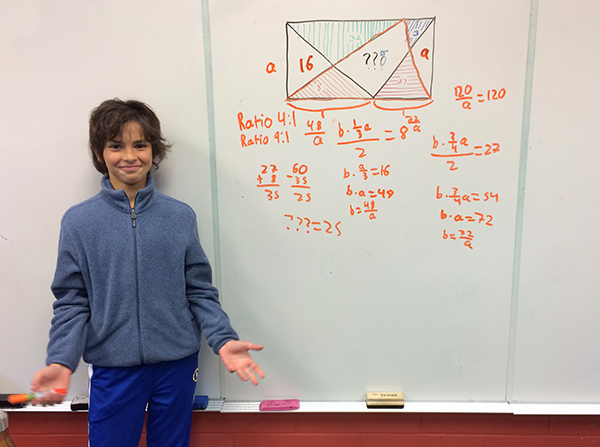 a 16 32 3 ??? 8 27 a
48/a 72/a
120/a = 120
Ratio 4:1
Ratio 9:1
b·⅓a/2 = 8
b·¾a/2 = 27
27 + 8 = 35
60 - 35 = 25
b·a/3 = 16
b·a = 48
b = 48/a
b·¾a = 54
b·a = 72
b = 72/a
??? = 25